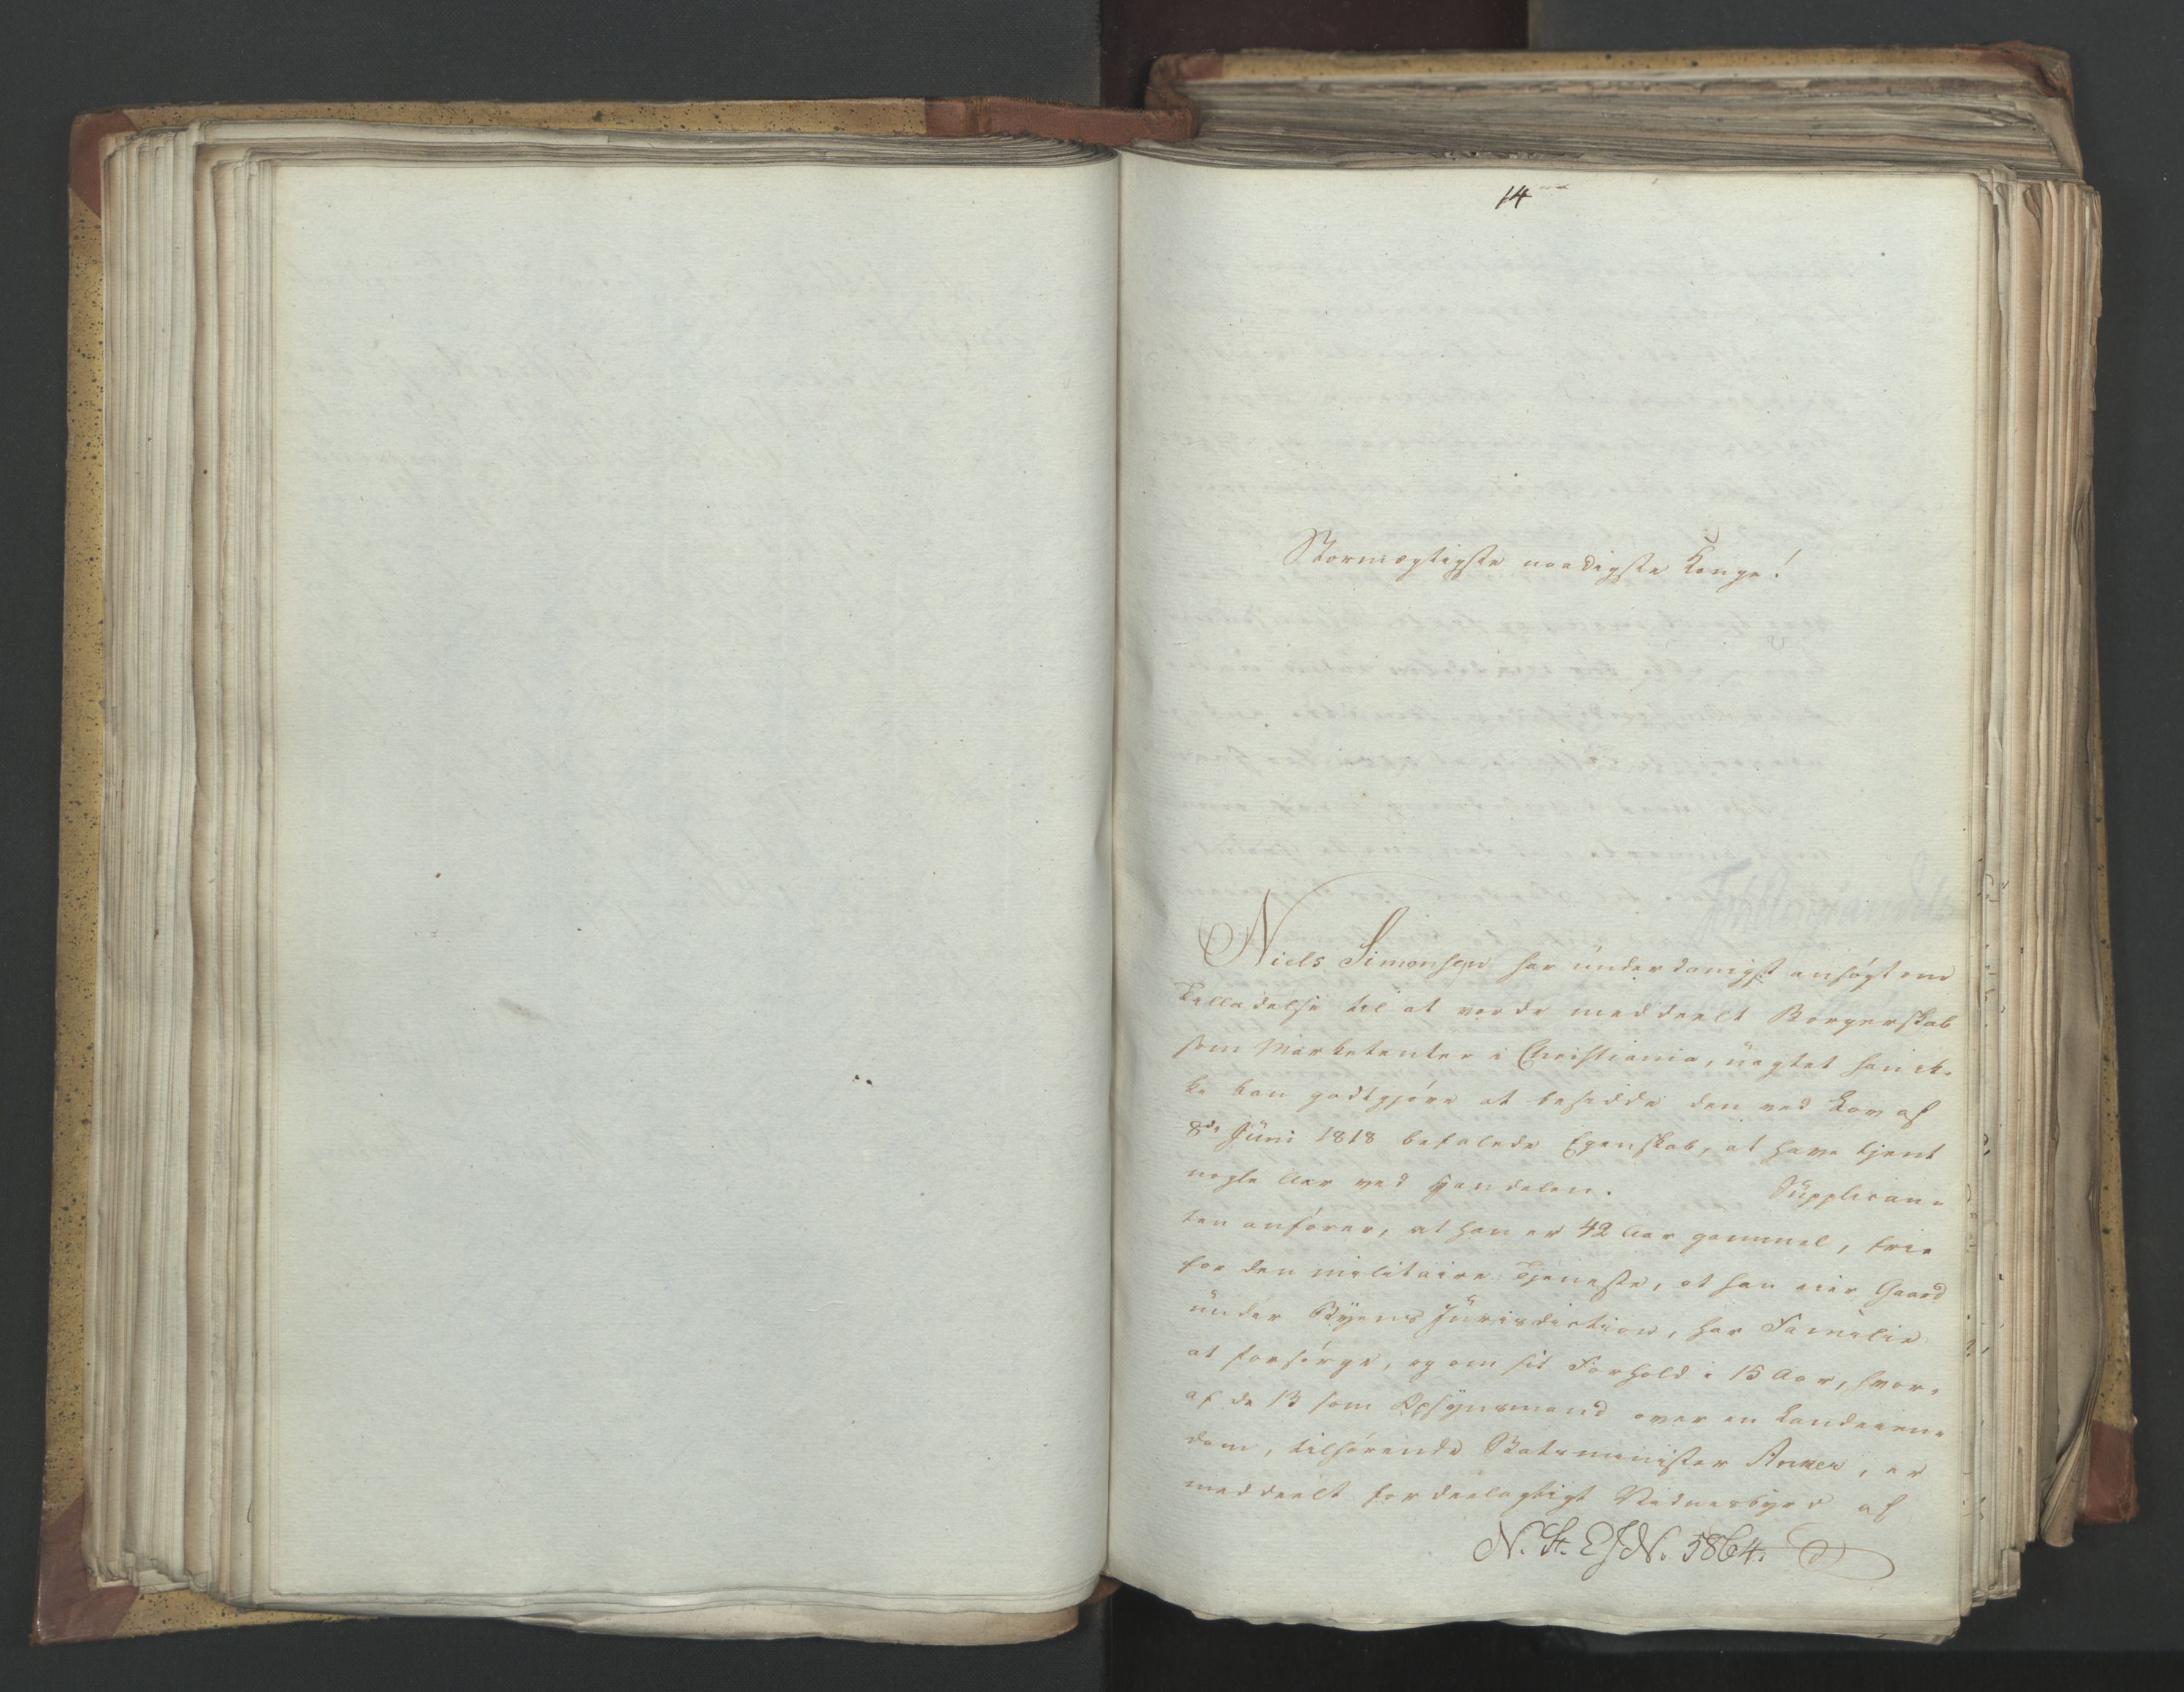 14
Stormægtigste naadigste Konge!
Niels Simonsen har underdanigst ansøgt om
Tilladelse til at vorde meddeelt Borgerskab
som Marketenter i Christiania, uagtet han ik-
ke kan godtgjøre at besidde den ved Lov af
8de Juni 1818 befalede Egenskab, at have tjent
nogle Aar ved Handelen. Supplican-
ten anfører, at han er 42 Aar gammel, frie
for den militaire Tjeneste, at han eier Gaard
under Byens Jurisdiction, har Familie
at forsørge, og om sit Forhold i 15 Aar, hvor-
af de 13 som Opsynsmand over en Landeien-
dom, tilhørende Statsminister Anker, er
meddeelt fordeelagtigt Vidnesbyrd af
N. St. E J No. 5864.